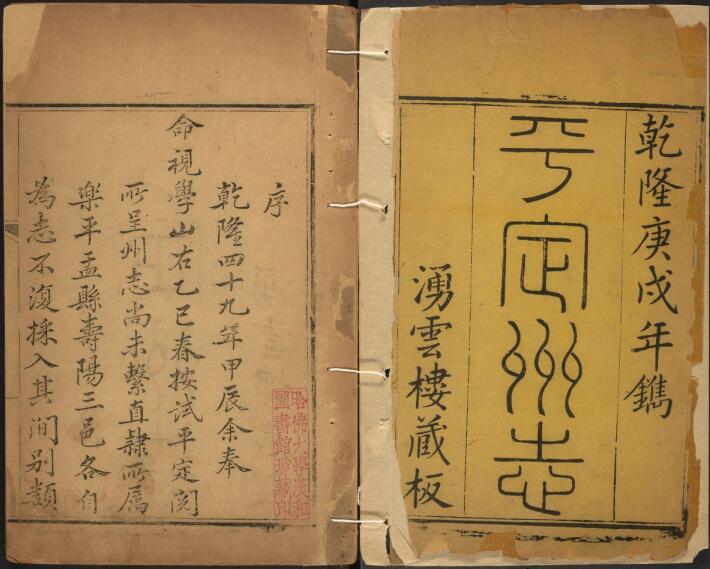 乾隆庚戌年鐫
平定州志
湧雲樓藏板
序
乾隆四十九年甲辰余奉
命視學山右乙巳春按試平定閱
所呈州志尚未繫直隷所属
樂平盂縣壽陽三邑各自
為志不復採入其間别類
哈佛大學漢和
圖書館珍藏印